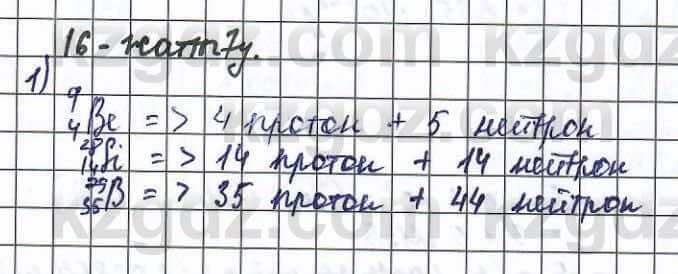 16-жаттығу.
1) ⁹₄Be => 4 протон + 5 нейтрон
²⁸₁₄Si => 14 протон + 14 нейтрон
⁷⁹₃₅B => 35 протон + 44 нейтрон